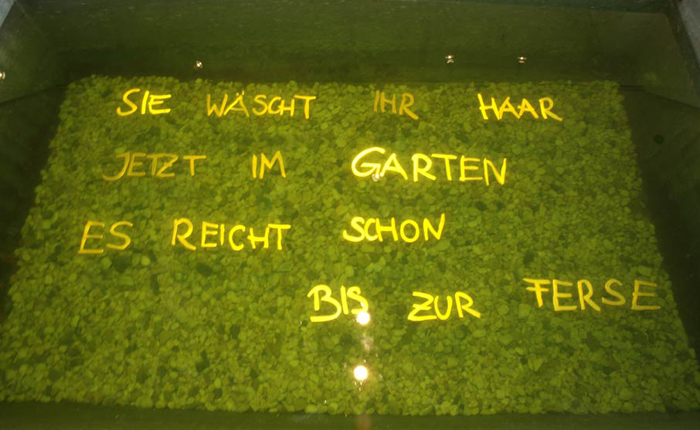 SIE WÄSCHT IHR HAAR
JETZT IM GARTEN
ES REICHT SCHON
BIS ZUR FERSE